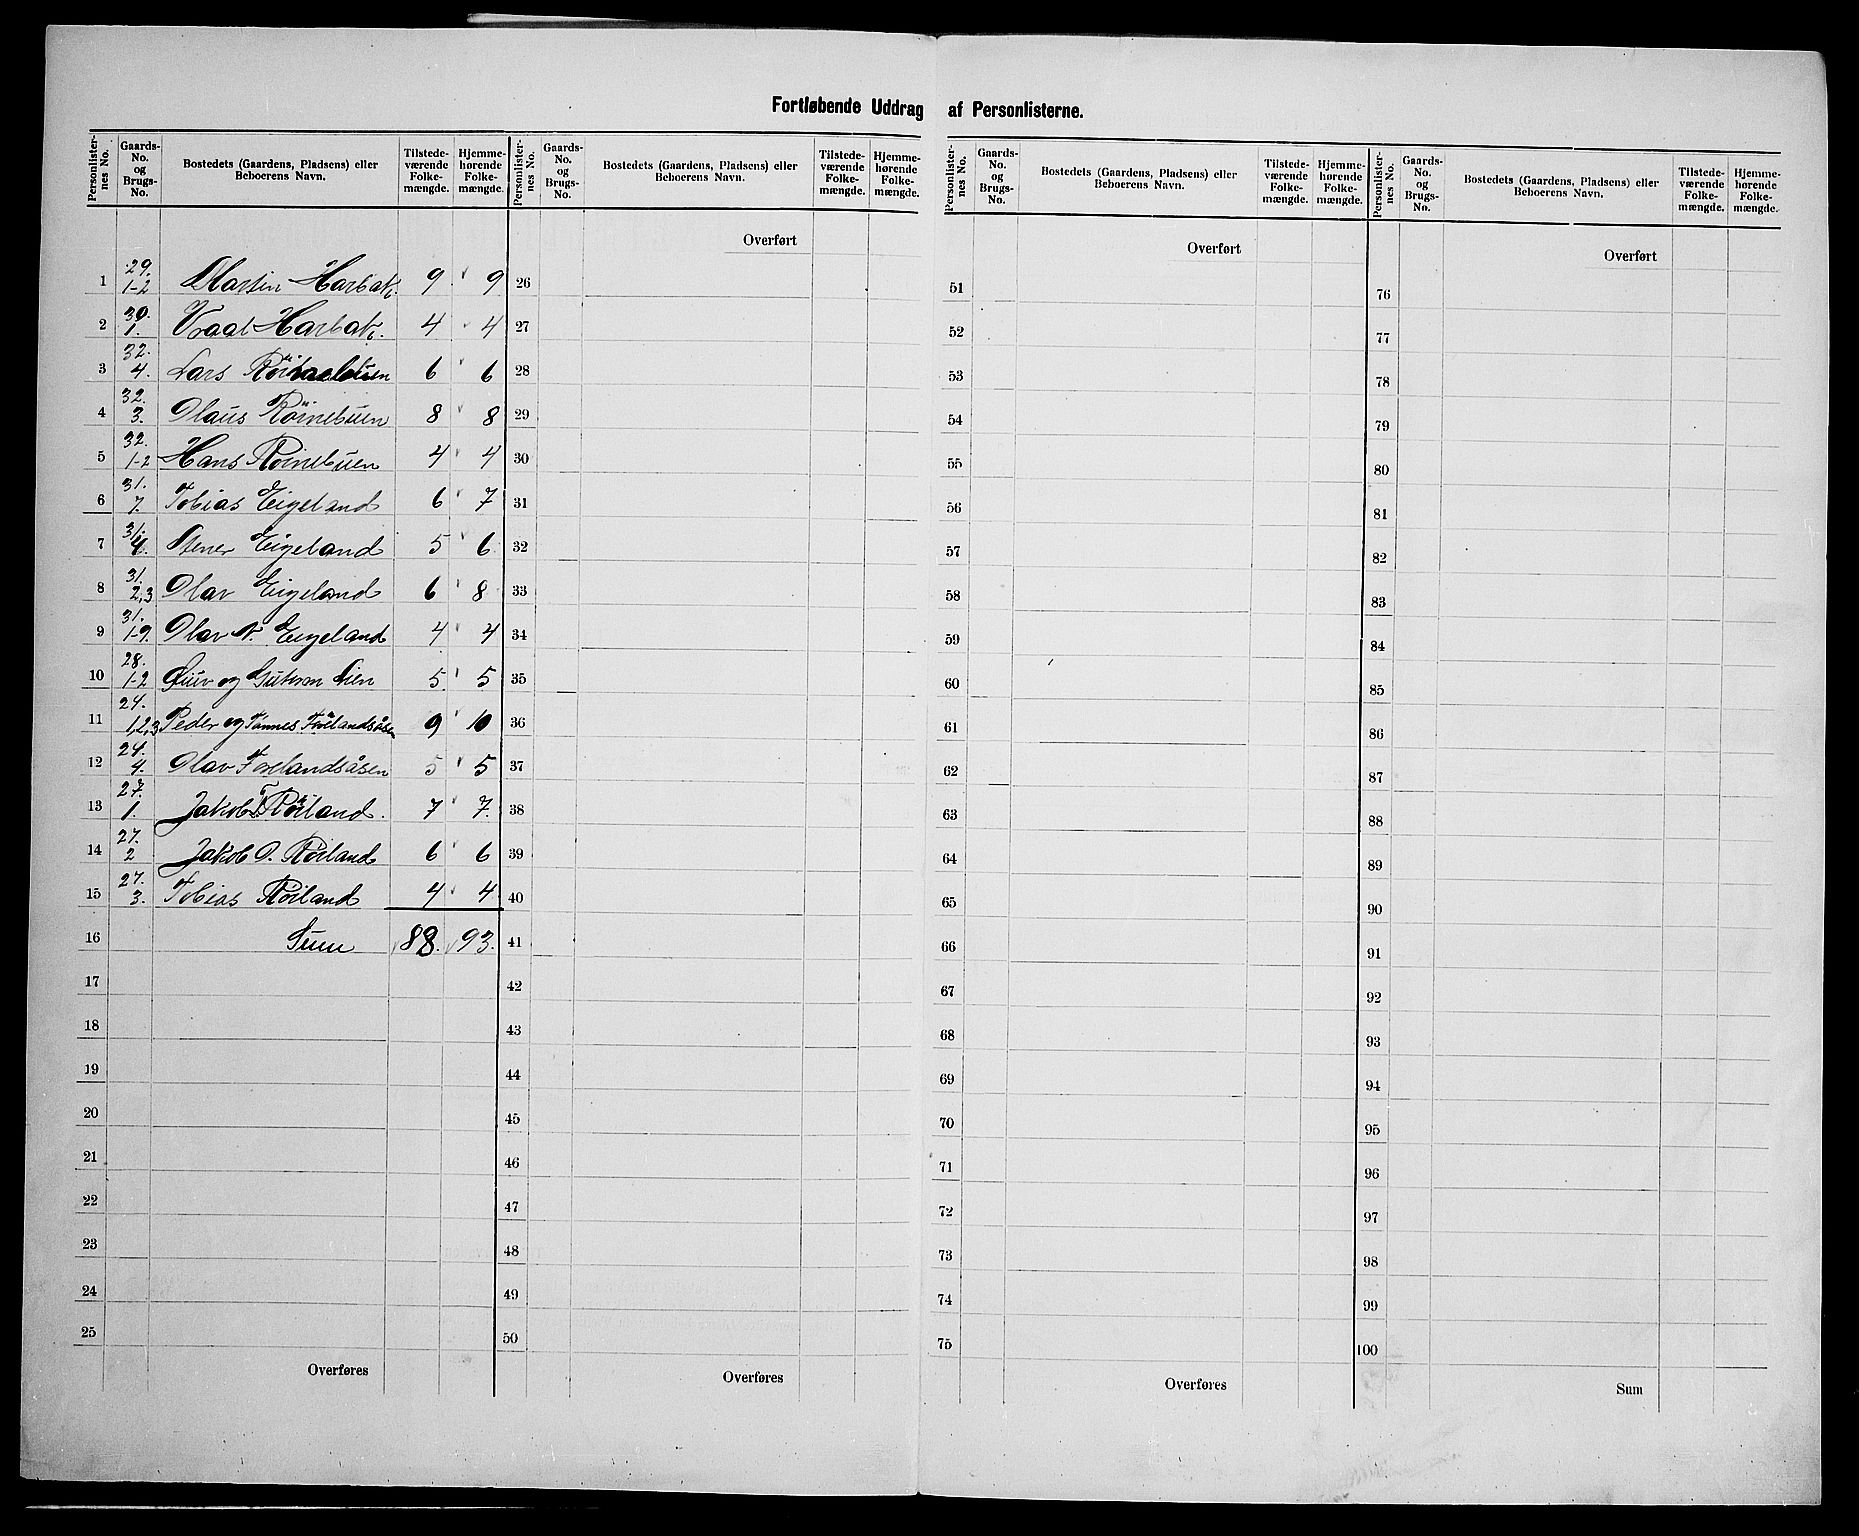 Fortløbende Uddrag af Personlisterne.
Personlisternes No. Gaards-No. og Brugs-No. Bostedets (Gaardens, Pladsens) eller Beboerens Navn. Tilstedeværende Folkemængde. Hjemmehørende Folkemængde.
1 29. 1-2 Martin Harbak. 9 9
2 30. 1. Vraal Harbak. 4 4
3 32. 4. Lars 6 6
4 32. 3. Olaus Rörnebuen 8 8
5 32. 1-2 Hans Rörnebuen 4 4
6 31. 7. Tobias Eigeland 6 7
7 31. 4. Stener Eigeland 5 6
8 31. 2,3 Olav Eigeland 6 8
9 31. 1-9. Olav N. Eigeland 4 4
10 28. 1-2 og Lien 5 5
11 24. 1,2,3 Peder og Tönnes Förelandsåsen 9 10
12 24. 4. Olav Förelandsåsen 5 5
13 27. 1. Jakob T. Röiland. 7 7.
14 27. 2 Jakob O. Röiland 6 6
15 27. 3. Tobias Röiland 4 4
16 Sum 88. 93.
17
18
19
20
21
22
23
24
25
Overføres
Personlisternes No. Gaards-No. og Brugs-No. Bostedets (Gaardens, Pladsens) eller Beboerens Navn. Tilstedeværende Folkemængde. Hjemmehørende Folkemængde.
Overført
26
27
28
29
30
31
32
33
34
35
36
37
38
39
40
41
42
43
44
45
46
47
48
49
50
Overføres
Personlisternes No. Gaards-No. og Brugs-No. Bostedets (Gaardens, Pladsens) eller Beboerens Navn. Tilstedeværende Folkemængde. Hjemmehørende Folkemængde.
Overført
51
52
53
54
55
56
57
58
59
60
61
62
63
64
65
66
67
68
69
70
71
72
73
74
75
Overføres
Personlisternes No. Gaards-No. og Brugs-No. Bostedets (Gaardens, Pladsens) eller Beboerens Navn. Tilstedeværende Folkemængde. Hjemmehørende Folkemængde.
Overført
76
77
78
79
80
81
82
83
84
85
86
87
88
89
90
91
92
93
94
95
96
97
98
99
100
Sum